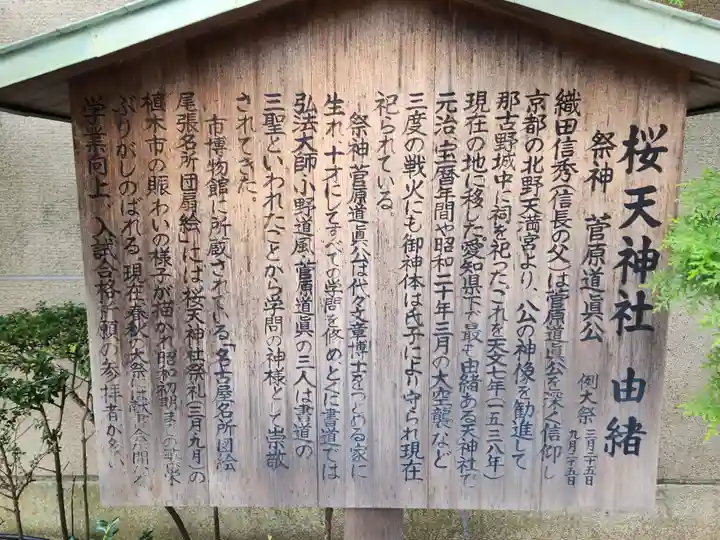 桜天神社 由緒
祭神 菅原道眞公 例大祭 三月二十五日 九月二十五日
織田信秀(信長の父)は菅原道眞公を深く信仰し
京都の北野天満宮より、公の神像を勧進して
那古野城中に祠を祀ったこれを天文七年(一五三八年)
現在の地に移した。愛知県下で最も由緒ある天神社で
元治、宝暦年間や昭和二十年三月の大空襲など
三度の戦火にも御神体は氏子により守られ現在
祀られている。
祭神 菅原道眞公は代々文章博士をつとめる家に
生れ、十才にしてすべての学問を修めとくに書道では
弘法大師・小野道風・菅原道眞の三人は書道の
三聖といわれたことから学問の神様として崇敬
されてきた。
市博物館に所蔵されている「名古屋名所団絵
尾張名所団扇絵」には桜天神社祭礼(三月九月)の
植木市の賑わいの様子が描かれ昭和初期までの
ぶりがしのばれる。現在春秋の大祭に
学業向上、入試合格祈願の参拝者が多い。